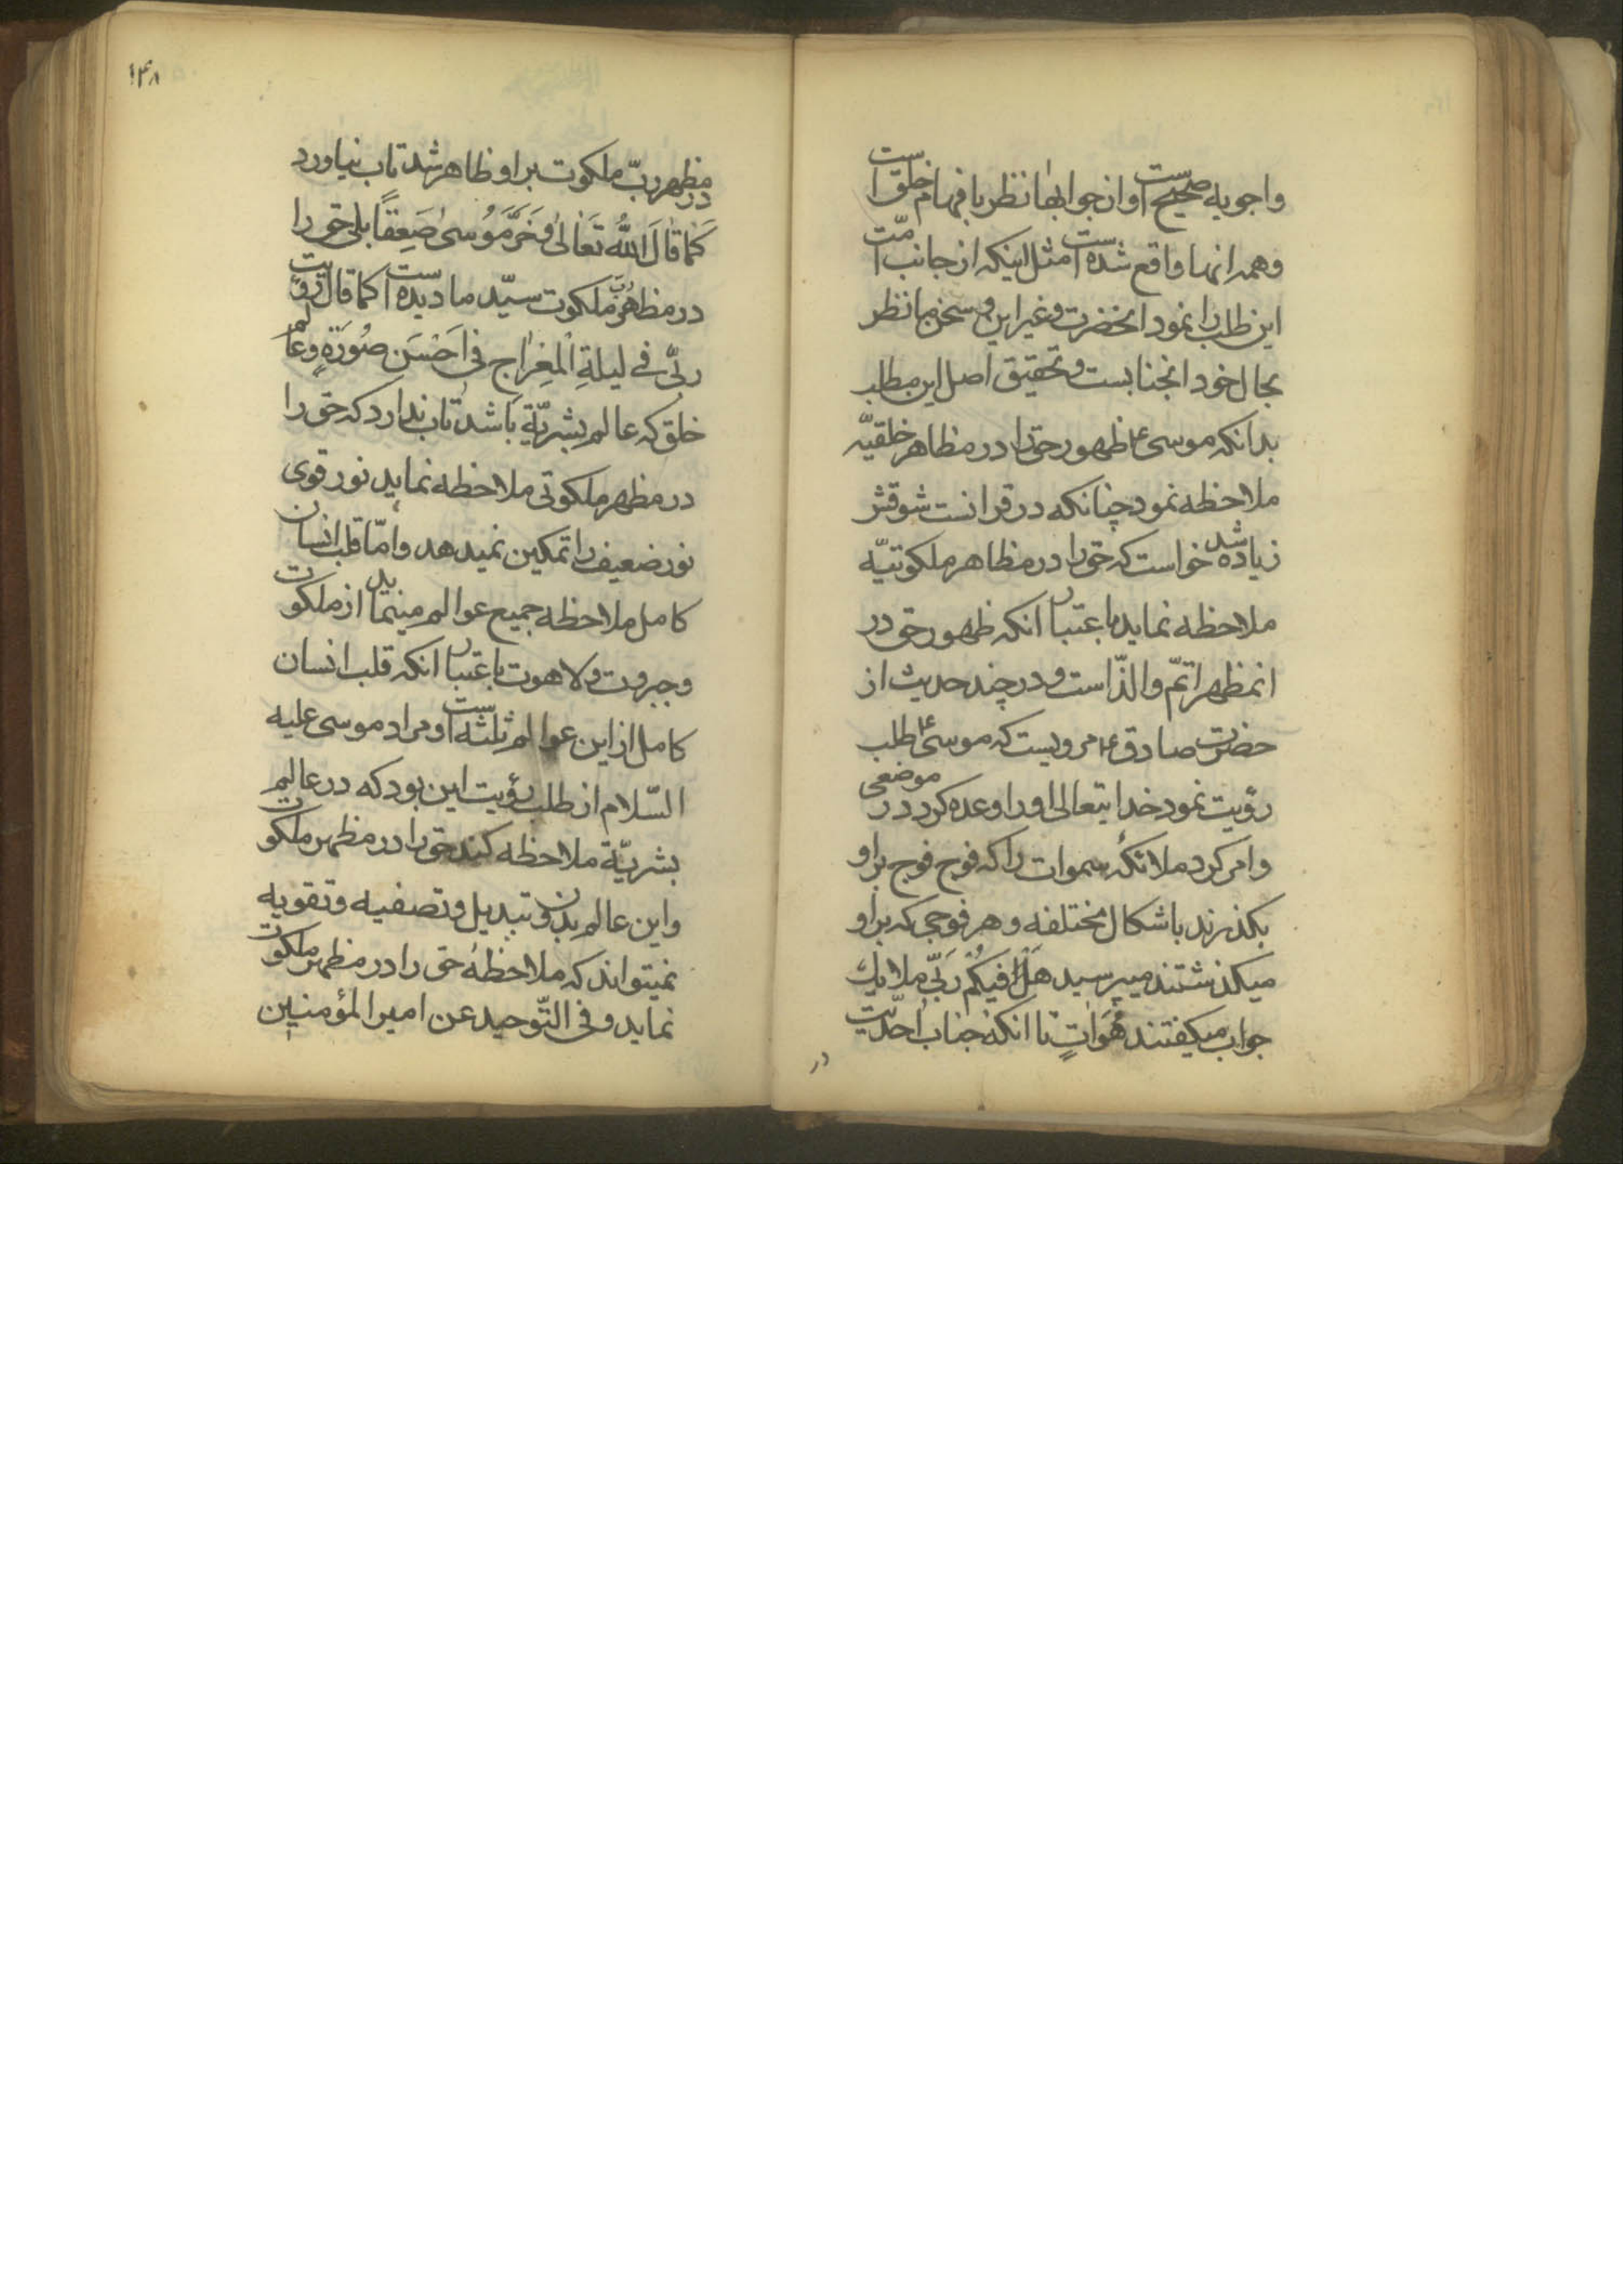 واجوبه صحیح است و از جوابها نظر بافهام خلق است
وهمه انها واقع شده است مثل اینکه از جانب امت
این طلب را نمود انحضرت وغیر این و سخن ما نظر
بحال خود انجنابست وتحقیق اصل این مطلب
بدانکه موسی ع ظهور حق را در مظاهر خلقیّه
ملاحظه نمود چنانکه در قرانست شوقش
زیاده شد خواست که حق را در مظاهر ملکوتیّه
ملاحظه نماید باعتبار انکه ظهور حق در
انمظهر اتمّ والذّ است ودر چند حدیث از
حضرت صادق ع مرویست که موسی ع طلب
رؤیت نمود خدایتعالی او را وعده کرد در موضعی
وامر کرد ملائکهٔ سموات را که فوج فوج براو
بکذرند باشکال مختلفه وهر فوجی که براو
میکذشتند میپرسید هَلْ فیکُم رَبّی ملایک
جواب میکفتند هُوَ اٰتٍ تا انکه جناب احدیّت
در
۱۴۸
در مظهر ربّ ملکوت براو ظاهر شد تاب نیاورد
کَمٰا قٰالَ اللّٰهُ تَعٰالیٰ وَخَرَّ مُوسیٰ صَعِقاً بلی حق را
در مظاهر ربّ ملکوت سیّد ما دیده است کما قال رؤیت
ربّی فی لیلةِ الْمِعْرٰاج فی اَحْسَنِ صُورَةٍ وعالم
خلق که عالم بشریّة باشد تاب ندارد که حق را
در مظهر ملکوتی ملاحظه نماید نور قوی
نور ضعیف را تمکین نمیدهد وامّا قلب انسان
کامل ملاحظه جمیع عوالم مینماید از ملکوت
وجبروت ولاهوت باعتبار انکه قلب انسان
کامل از این عوالم ثلثه است ومراد موسی علیه
السّلام از طلب رؤیت این بود که در عالم
بشریّة ملاحظه کند حق را در مظهر ملکوت
واین عالم بدون تبدیل وتصفیه وتقویه
نمیتواند که ملاحظهٔ حق را در مظهر ملکوت
نماید وفی التّوحید عن امیر المؤمنین